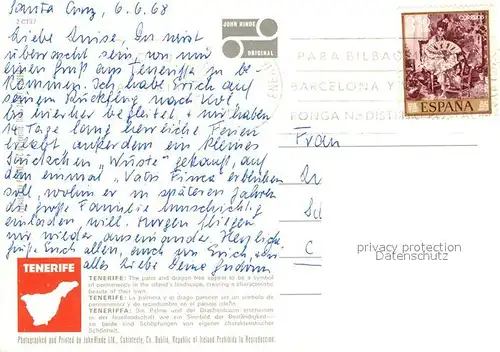 Santa Cruz, 6.6.68
Liebe Luise, Du wirst
überrascht sein, von mir
einen Gruß aus Teneriffa zu be-
kommen. Ich habe Erich auf
seinem Rückflug nach Kol.
bis hierher begleitet, + wir haben
14 Tage lang herrliche Ferien
erlebt außerdem ein kleines
Stückchen „Wüste" gekauft, auf
dem einmal „Vatis Finca" erblühen
soll, wohin er in späteren Jahren
die große Familie umschichtig
einladen will. Morgen fliegen
wir wieder auseinander. Herzliche
Grüße Euch allen, auch von Erich,
alles Liebe Deine
JOHN HINDE
ORIGINAL
CORREOS
ESPAÑA
PARA BILBAO
BARCELONA Y
PONGA N.º DISTRITO
Frau
privacy protection
TENERIFE
TENERIFE: The palm and dragon tree appear to be a symbol
of permanency in the island's landscape, creating a characteristic
beauty of their own.
TENERIFE: La palmera y el drago parecen ser un símbolo de
permanencia y de recordumbre en el paisaje isleño.
TENERIFFA: Die Palme und der Drachenbaum erscheinen
in der Insellandschaft wie ein Sinnbild der Beständigkeit—
so beide sind Schöpfungen von eigener charakteristischer
Schönheit.
Photographed and Printed by John Hinde Ltd., Cabinteely, Co. Dublin, Republic of Ireland Prohibida la Reproduccion.